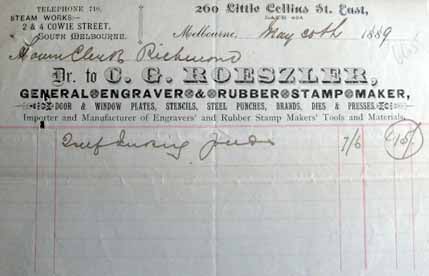 TELEPHONE 716,
STEAM WORKS—
2 & 4 COWIE STREET,
SOUTH MELBOURNE.
260 Little Collins St. East,
LATE 45A
Melbourne, May 30th 1889
Town Clerk Richmond
Dr. to C. G. ROESZLER,
GENERAL ENGRAVER & RUBBER STAMP MAKER,
DOOR & WINDOW PLATES, STENCILS, STEEL PUNCHES, BRANDS, DIES & PRESSES.
Importer and Manufacturer of Engravers' and Rubber Stamp Makers' Tools and Materials.
Self Inking 7/6